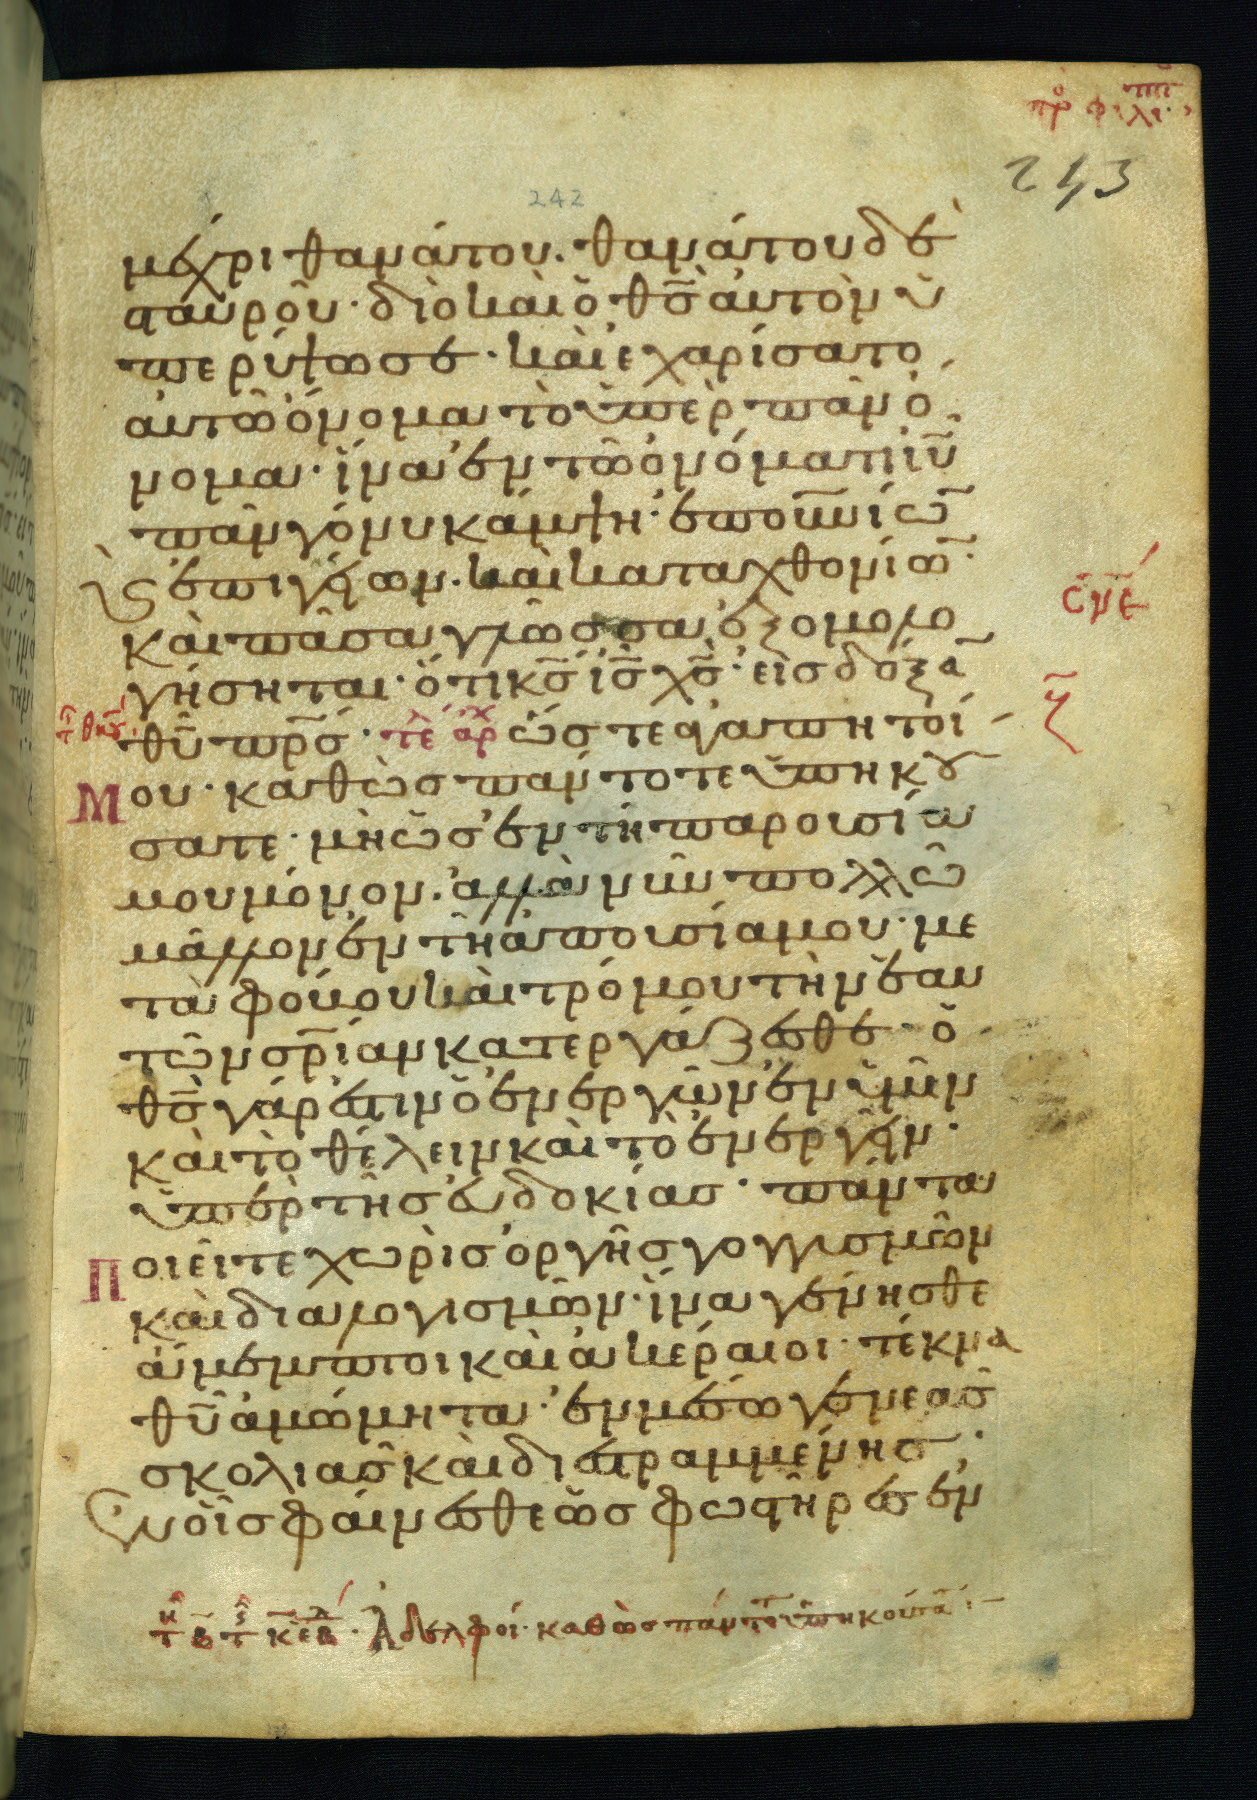 πρ̊ φιλιππ
243
242
μέχρι θανάτου. θανάτου δὲ
σταυροῦ· διὸ καὶ ὁ θ̅ς̅ αὐτὸν ὑ
περύψωσε· καὶ ἐχαρίσατο
αὐτῶ ὄνομα τὸ ὑπὲρ πᾶν ὄ
νομα· ἵνα ἐν τῶ ὀνόματι ἰ̅υ̅
πᾶν γόνυ κάμψη· ἐπουνίω̅
ϗ ἐπιγείων. καὶ καταχθονίω̅·
καὶ πᾶσα γλῶσσα ἐξομολο
γήσηται· ὅτι κ̅ς̅ ι̅ς̅ χ̅ς̅· εἰς δόξα̅
θ̅υ̅ π̅ρ̅ς̅· τε̅ αρχ ὥστε ἀγαπητοί
Μου· καθὼς πάντοτε ὑπηκού
σατε· μὴ ὡς ἐν τῆ παρουσία
μου μόνον. ἀλλὰ νῦν πολλῶ
μᾶλλον ἐν τῆ ἀπουσία μου· με
τὰ φόβου καὶ τρόμου τὴν ἑαυ
τῶν σ̅ρ̅ίαν κατεργάζεσθε· ὁ
θ̅ς̅ γάρ ἐστιν ὁ ἐνεργῶν ἐν ὑμῖν
καὶ τὸ θέλειν καὶ τὸ ἐνεργεῖν·
ὑπὲρ τῆς εὐδοκίας· πάντα
Ποιεῖτε χωρὶς ὀργῆς γογγυσμῶν
καὶ διαλογισμῶν· ἵνα γένησθε
ἄμεμπτοι καὶ ἀκέραιοι· τέκνα
θ̅υ̅ ἀμώμητα· ἐν μέσω γενεᾶς
σκολιᾶς καὶ διεστραμμένης·
Ἐν οἷς φαίνεσθε ὡς φωστῆρες ἐν
Ἀδελφοί· καθὼς πάντο ὑπηκούσα